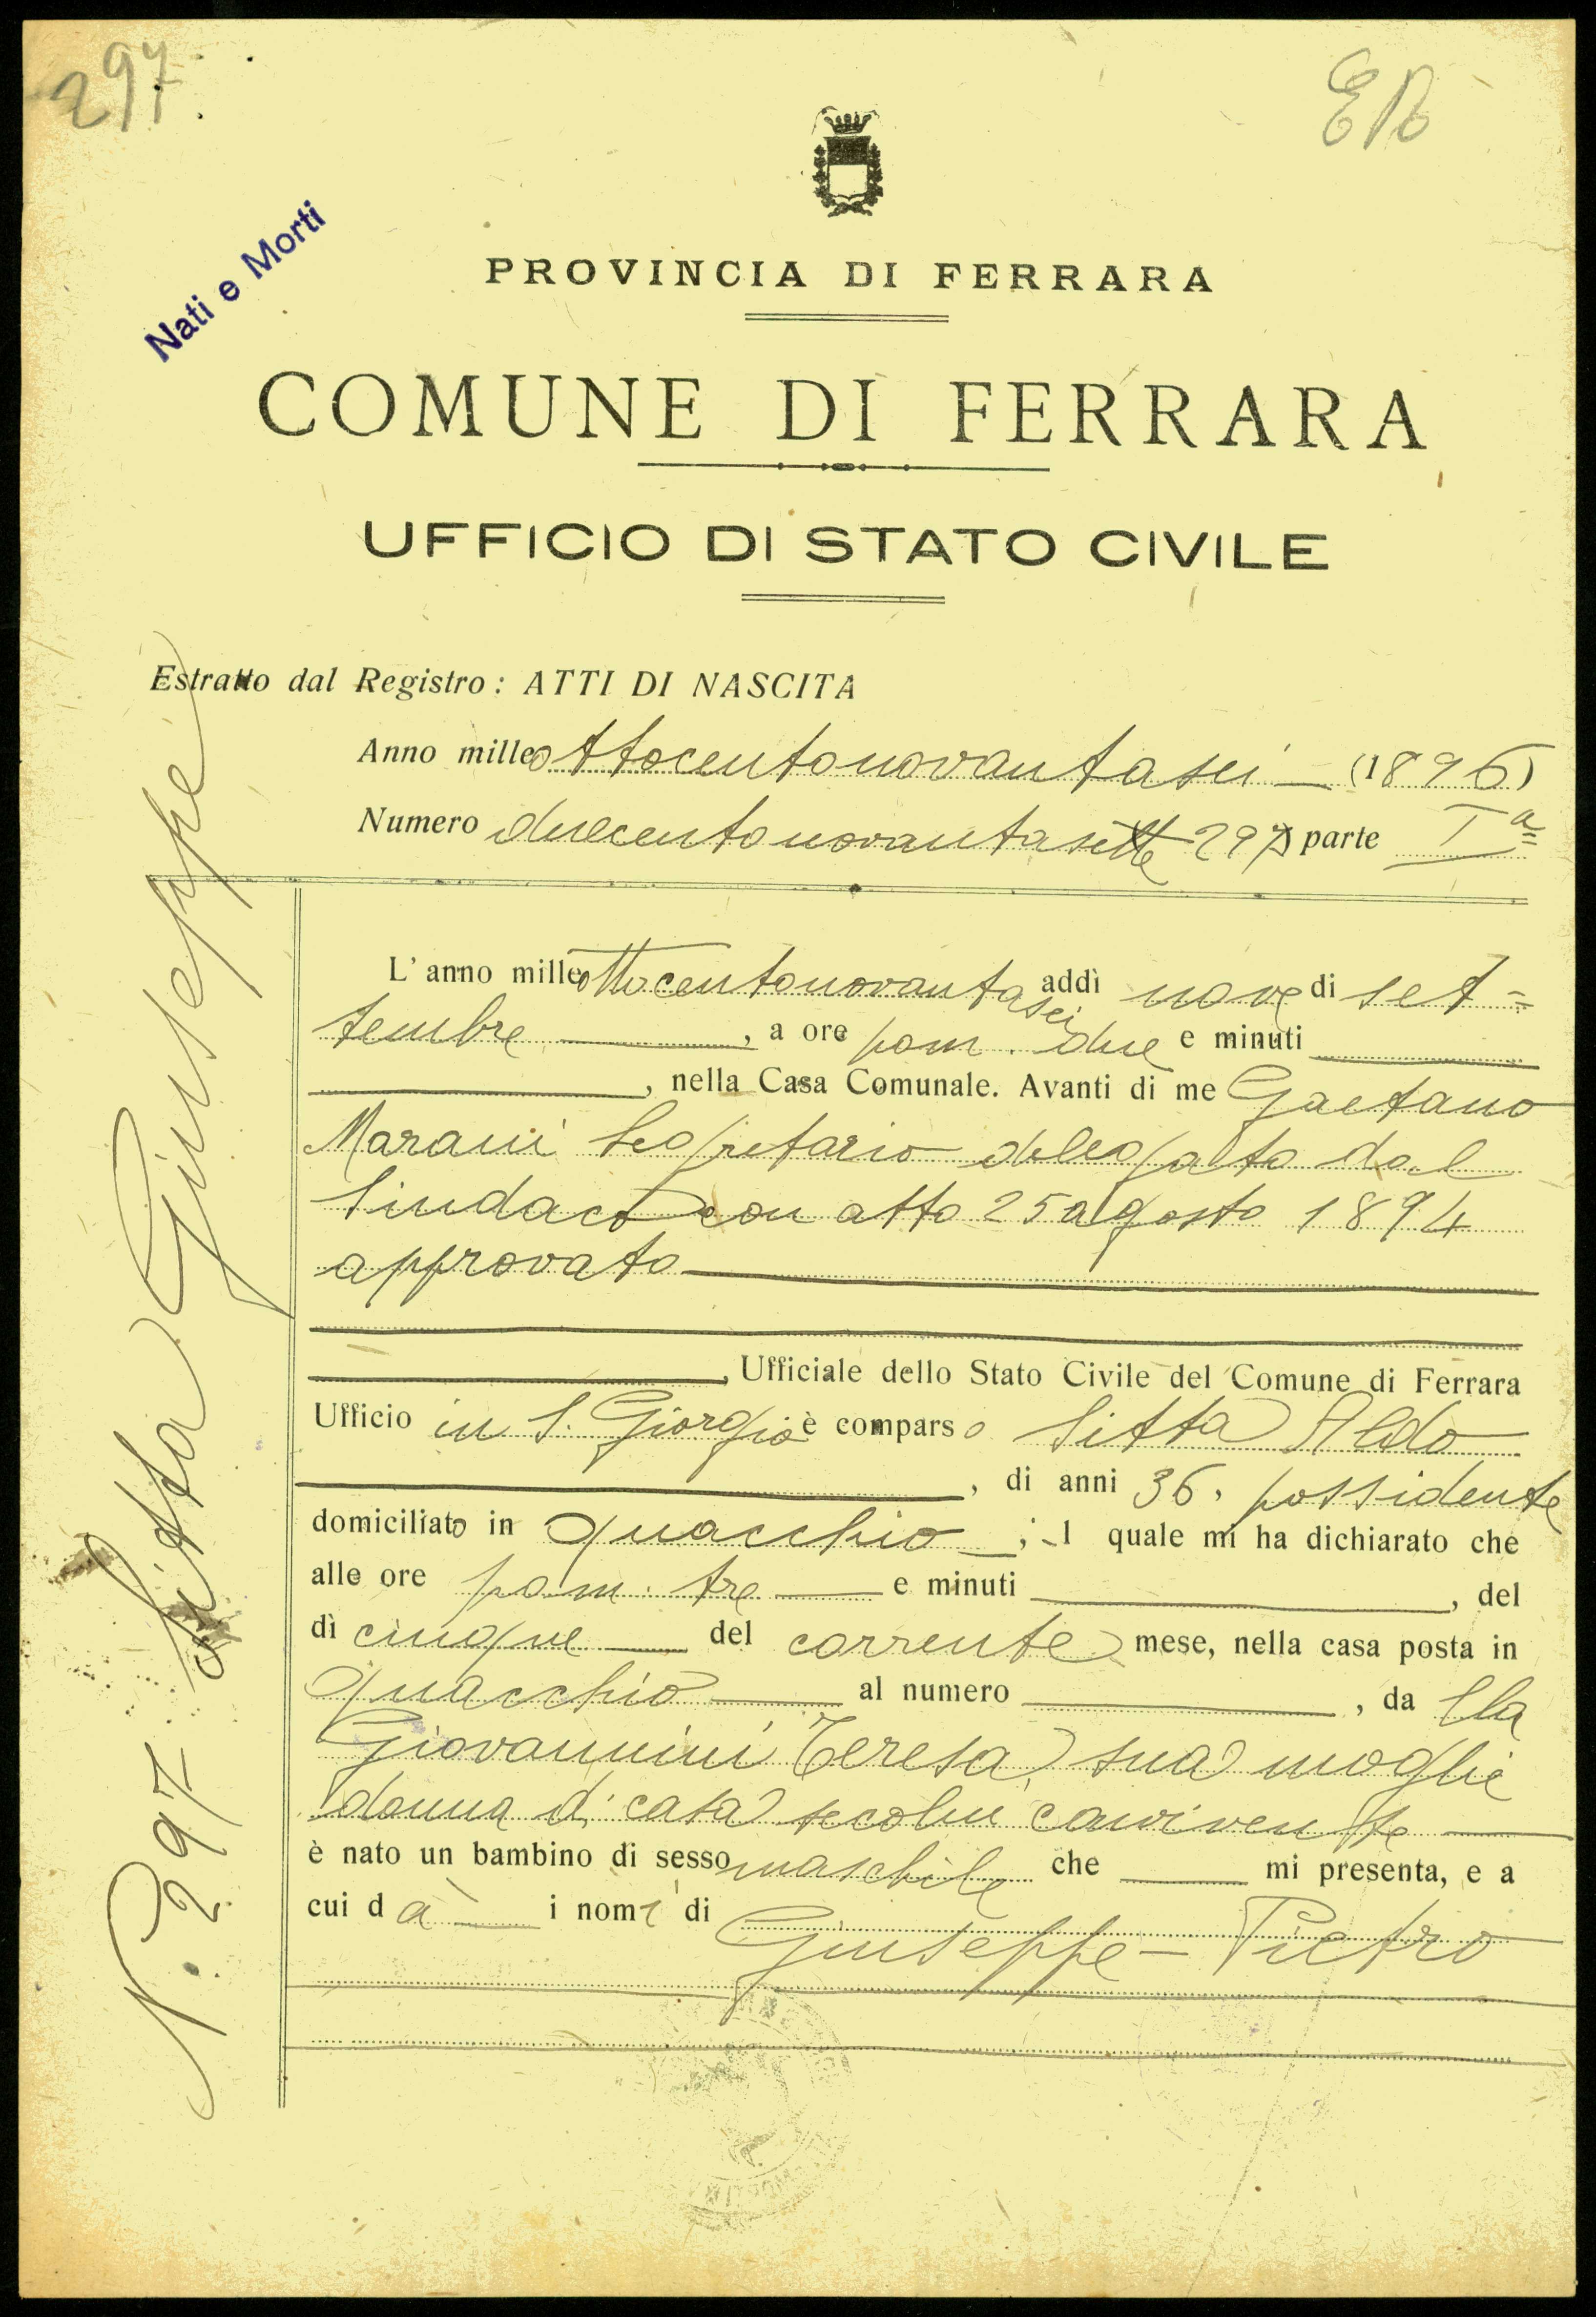 297
EB
Nati e Morti
PROVINCIA DI FERRARA
COMUNE DI FERRARA
UFFICIO DI STATO CIVILE
Estratto dal Registro: ATTI DI NASCITA
Anno milleottocentonovantasei (1896)
Numero duecentonovantasette 297) parte Iª
N. 297 Sitta Giuseppe
L'anno milleottocentonovantasei addì nove di set=
tembre, a ore pom. due e minuti
, nella Casa Comunale. Avanti di me Gaetano
Marani Segretario delegato dal
Sindaco con atto 25 agosto 1894
approvato
, Ufficiale dello Stato Civile del Comune di Ferrara
Ufficio in S. Giorgio è comparso Sitta Aldo
, di anni 36, possidente
domiciliato in Quacchio; il quale mi ha dichiarato che
alle ore pom. tre e minuti , del
dì cinque del corrente mese, nella casa posta in
Quacchio al numero , da lla
Giovannini Teresa sua moglie
donna di casa secolui convivente
è nato un bambino di sesso maschile che mi presenta, e a
cui dà i nomi di Giuseppe - Pietro